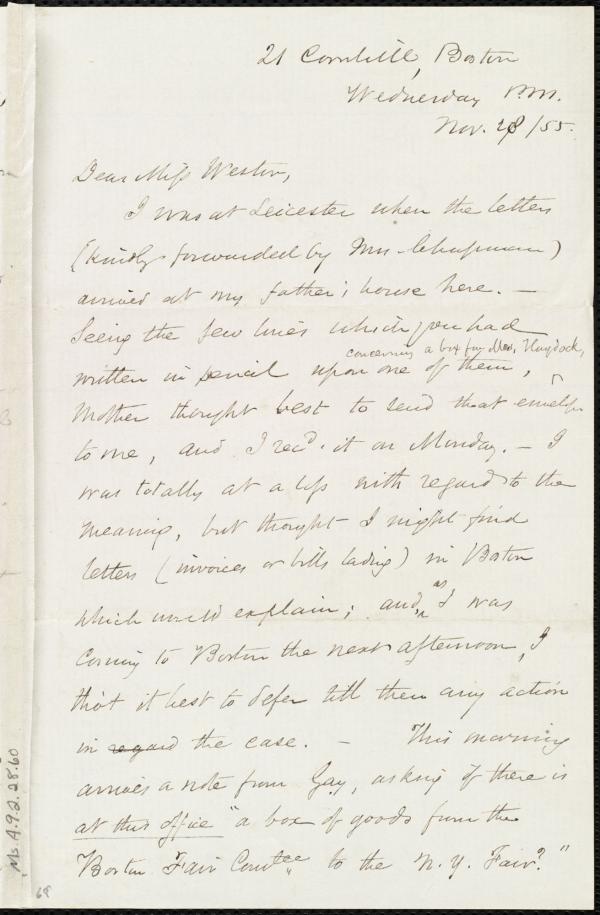 21 Cornhill, Boston
Wednesday P.M.
Nov. 28/55.
Dear Miss Weston,
I was at Leicester when the letters
(kindly forwarded by Mrs. Chapman)
arrived at my father's house here. —
Seeing the few lines which you had
concerning a box for Mrs. Haydock,
written in pencil upon one of them,
Mother thought best to send that envelope
to me, and I rec'd. it on Monday. — I
was totally at a loss with regard to the
meaning, but thought I might find
letters (invoices or bills lading) in Boston
which would explain; and, as I was
coming to Boston the next afternoon, I
tho't it best to defer till then any action
in regard the case. — This morning
arrives a note from Gay, asking if there is
at this office "a box of goods from the
Boston Fair Comtee. to the N.Y. Fair?"
Ms. A.9.2.28.60
68